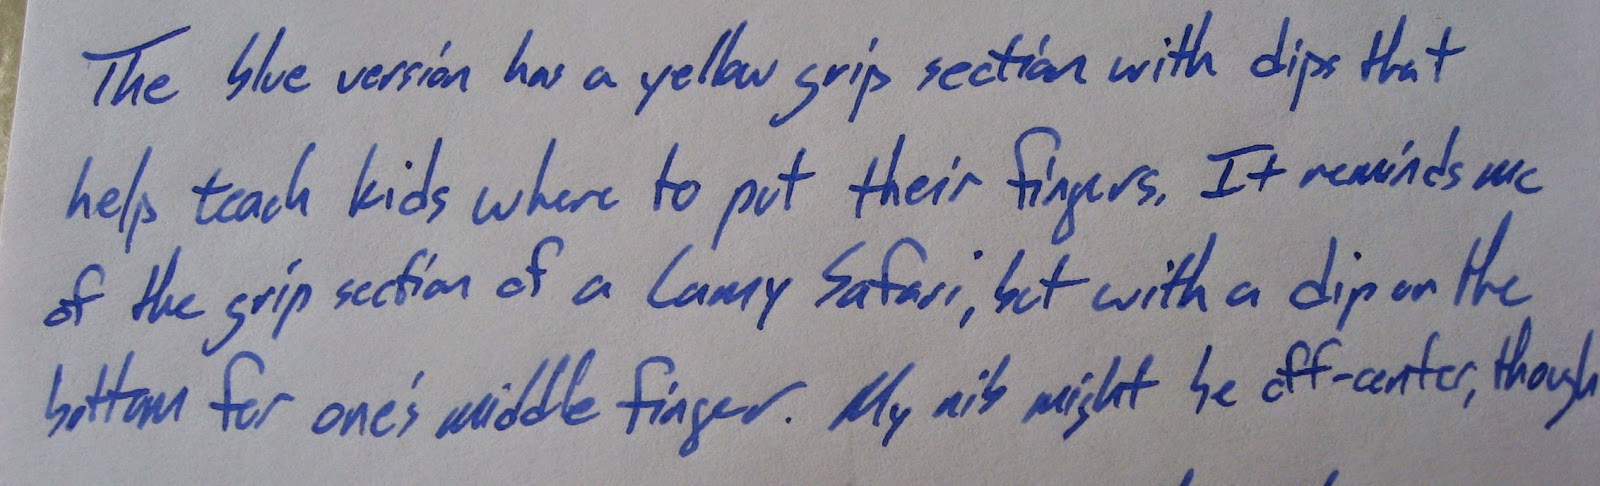 The blue version has a yellow grip section with dips that
help teach kids where to put their fingers. It reminds me
of the grip section of a Lamy Safari, but with a dip on the
bottom for one's middle finger. My nib might be off-center, though